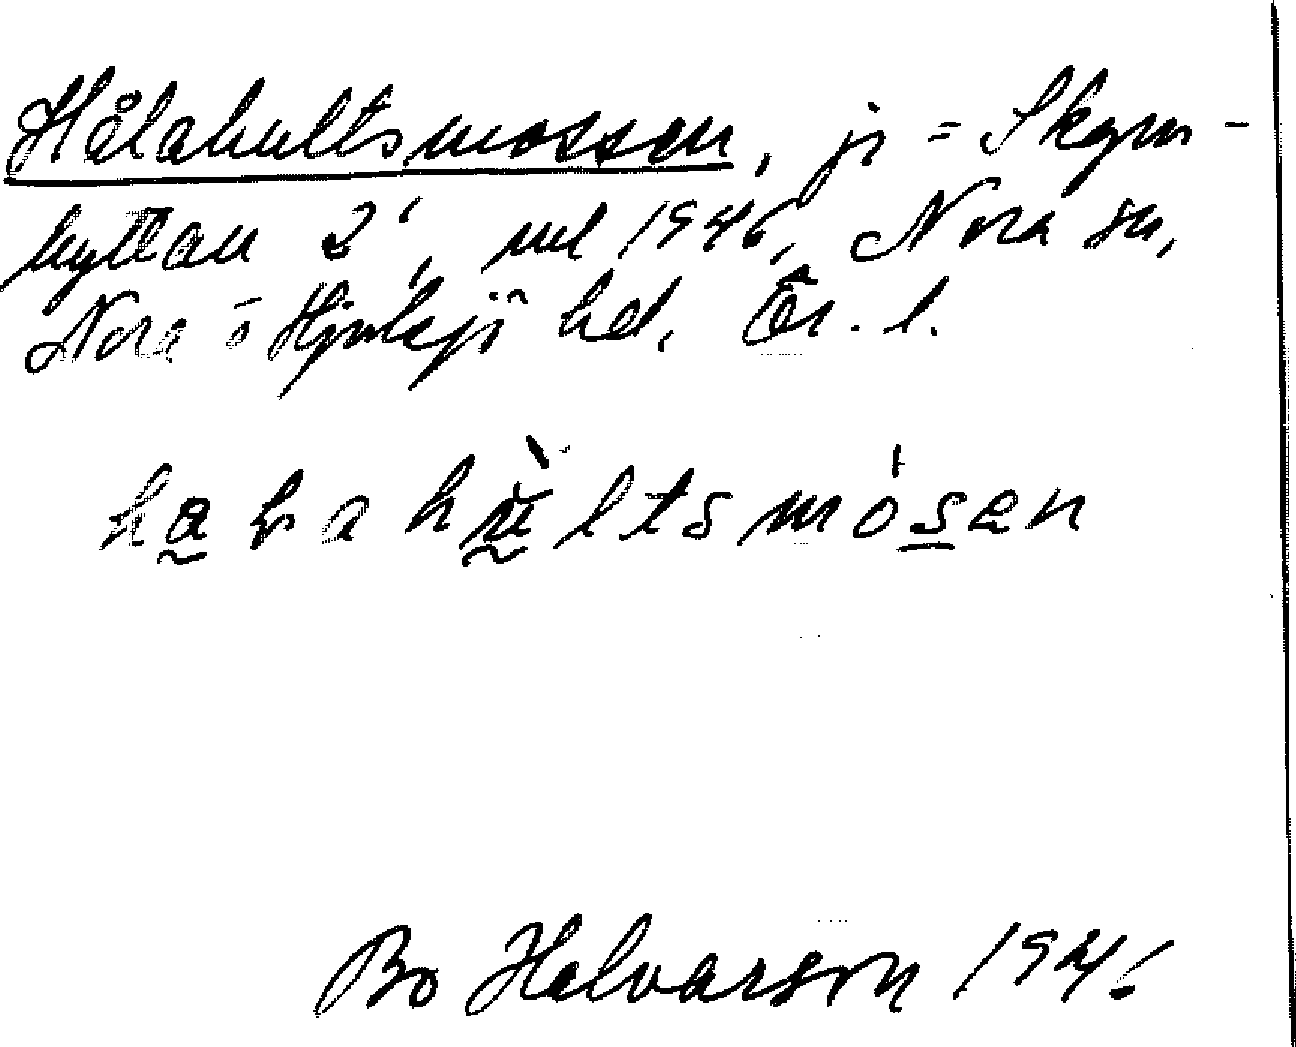 Hålahultsmossen, jr = Skrym-
hyttan 2', uel 1946, Nora sn,
Nora o Hjulsjö hd. Ör. l.
hahahultsmósen
Bo Halvarson 1946